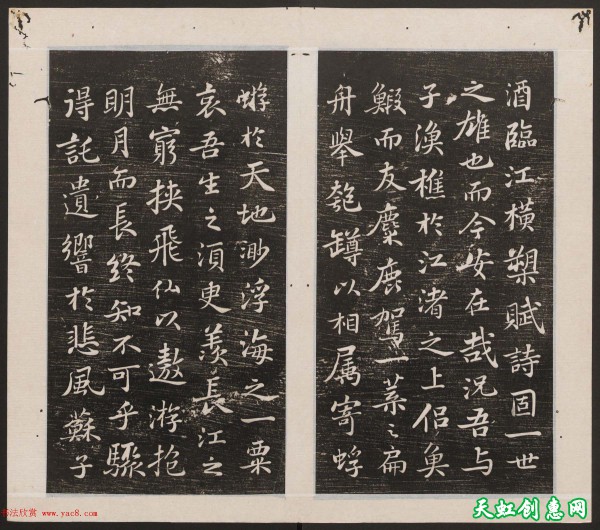 酒臨江橫槊賦詩固一世
之雄也而今安在哉況吾与
子漁樵於江渚之上侶魚
鰕而友麋鹿駕一葉之扁
舟舉匏罇以相属寄蜉
蝣於天地渺浮海之一粟
哀吾生之須臾羨長江之
無窮挾飛仙以遨游抱
明月而長終知不可乎驟
得託遺響於悲風蘇子
书法欣赏 www.yac8.com
天虹创惠网